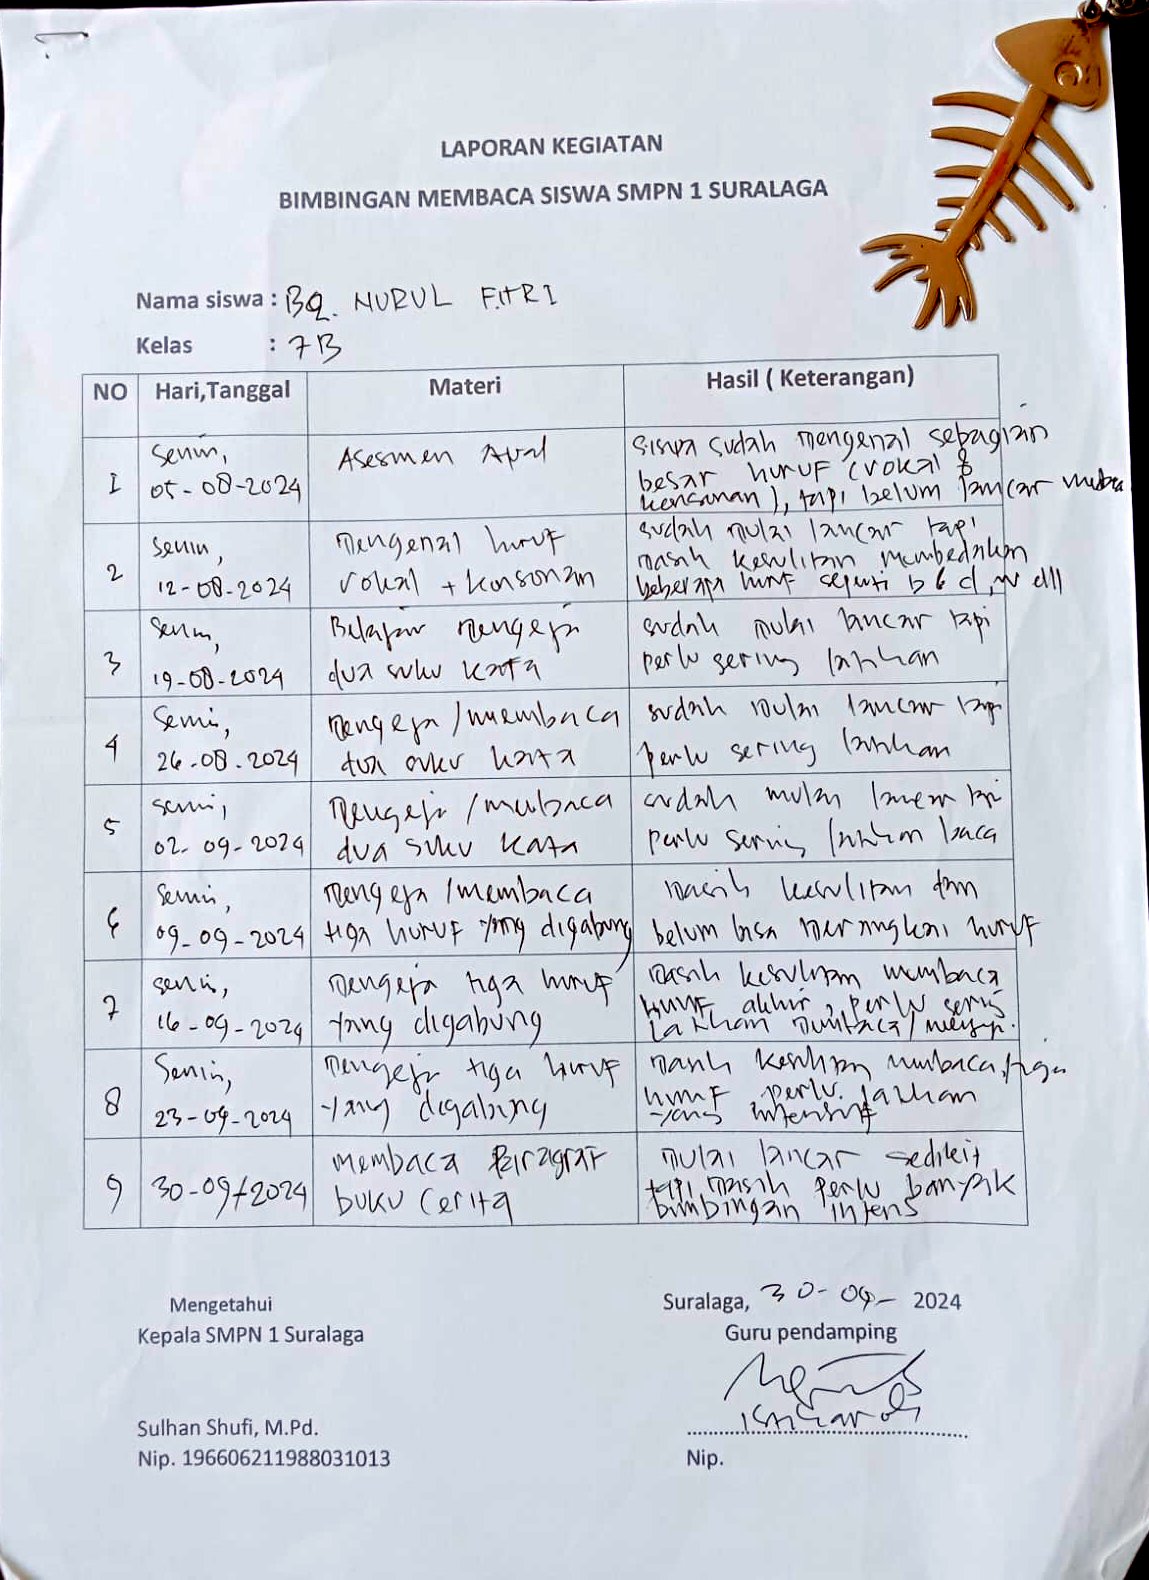 LAPORAN KEGIATAN
BIMBINGAN MEMBACA SISWA SMPN 1 SURALAGA
Nama siswa : BQ. NURUL FITRI
Kelas : 7B
NO Hari,Tanggal Materi Hasil ( Keterangan)
1
Senin,
05-08-2024
Asesmen Awal
Siswa sudah mengenal sebagian
besar huruf (vokal &
konsonan), tapi belum lancar
2
Senin,
12-08-2024
Mengenal huruf
vokal + konsonan
sudah mulai lancar tapi
masih kesulitan membedakan
beberapa huruf seperti b d, dll
3
Senin,
19-08-2024
Belajar mengeja
dua suku kata
sudah mulai lancar tapi
perlu sering latihan
4
Senin,
26-08-2024
Mengeja/membaca
dua suku kata
sudah mulai lancar tapi
perlu sering latihan
5
Senin,
02-09-2024
Mengeja/membaca
dua suku kata
sudah mulai lancar tapi
perlu sering latihan baca
6
Senin,
09-09-2024
Mengeja/membaca
tiga huruf yang digabung
Masih kesulitan dan
belum bisa merangkai huruf
7
Senin,
16-09-2024
Mengeja tiga huruf
yang digabung
Masih kesulitan membaca
huruf akhir, perlu sering
latihan membaca/mengeja.
8
Senin,
23-09-2024
Mengeja tiga huruf
yang digabung
Masih kesulitan membaca tiga
huruf perlu latihan
yang intensif
9
30-09-2024
Membaca Paragraf
buku cerita
Mulai lancar sedikit
tapi masih perlu banyak
bimbingan intens
Mengetahui
Kepala SMPN 1 Suralaga
Sulhan Shufi, M.Pd.
Nip. 196606211988031013
Suralaga, 30-09- 2024
Guru pendamping
Nip.